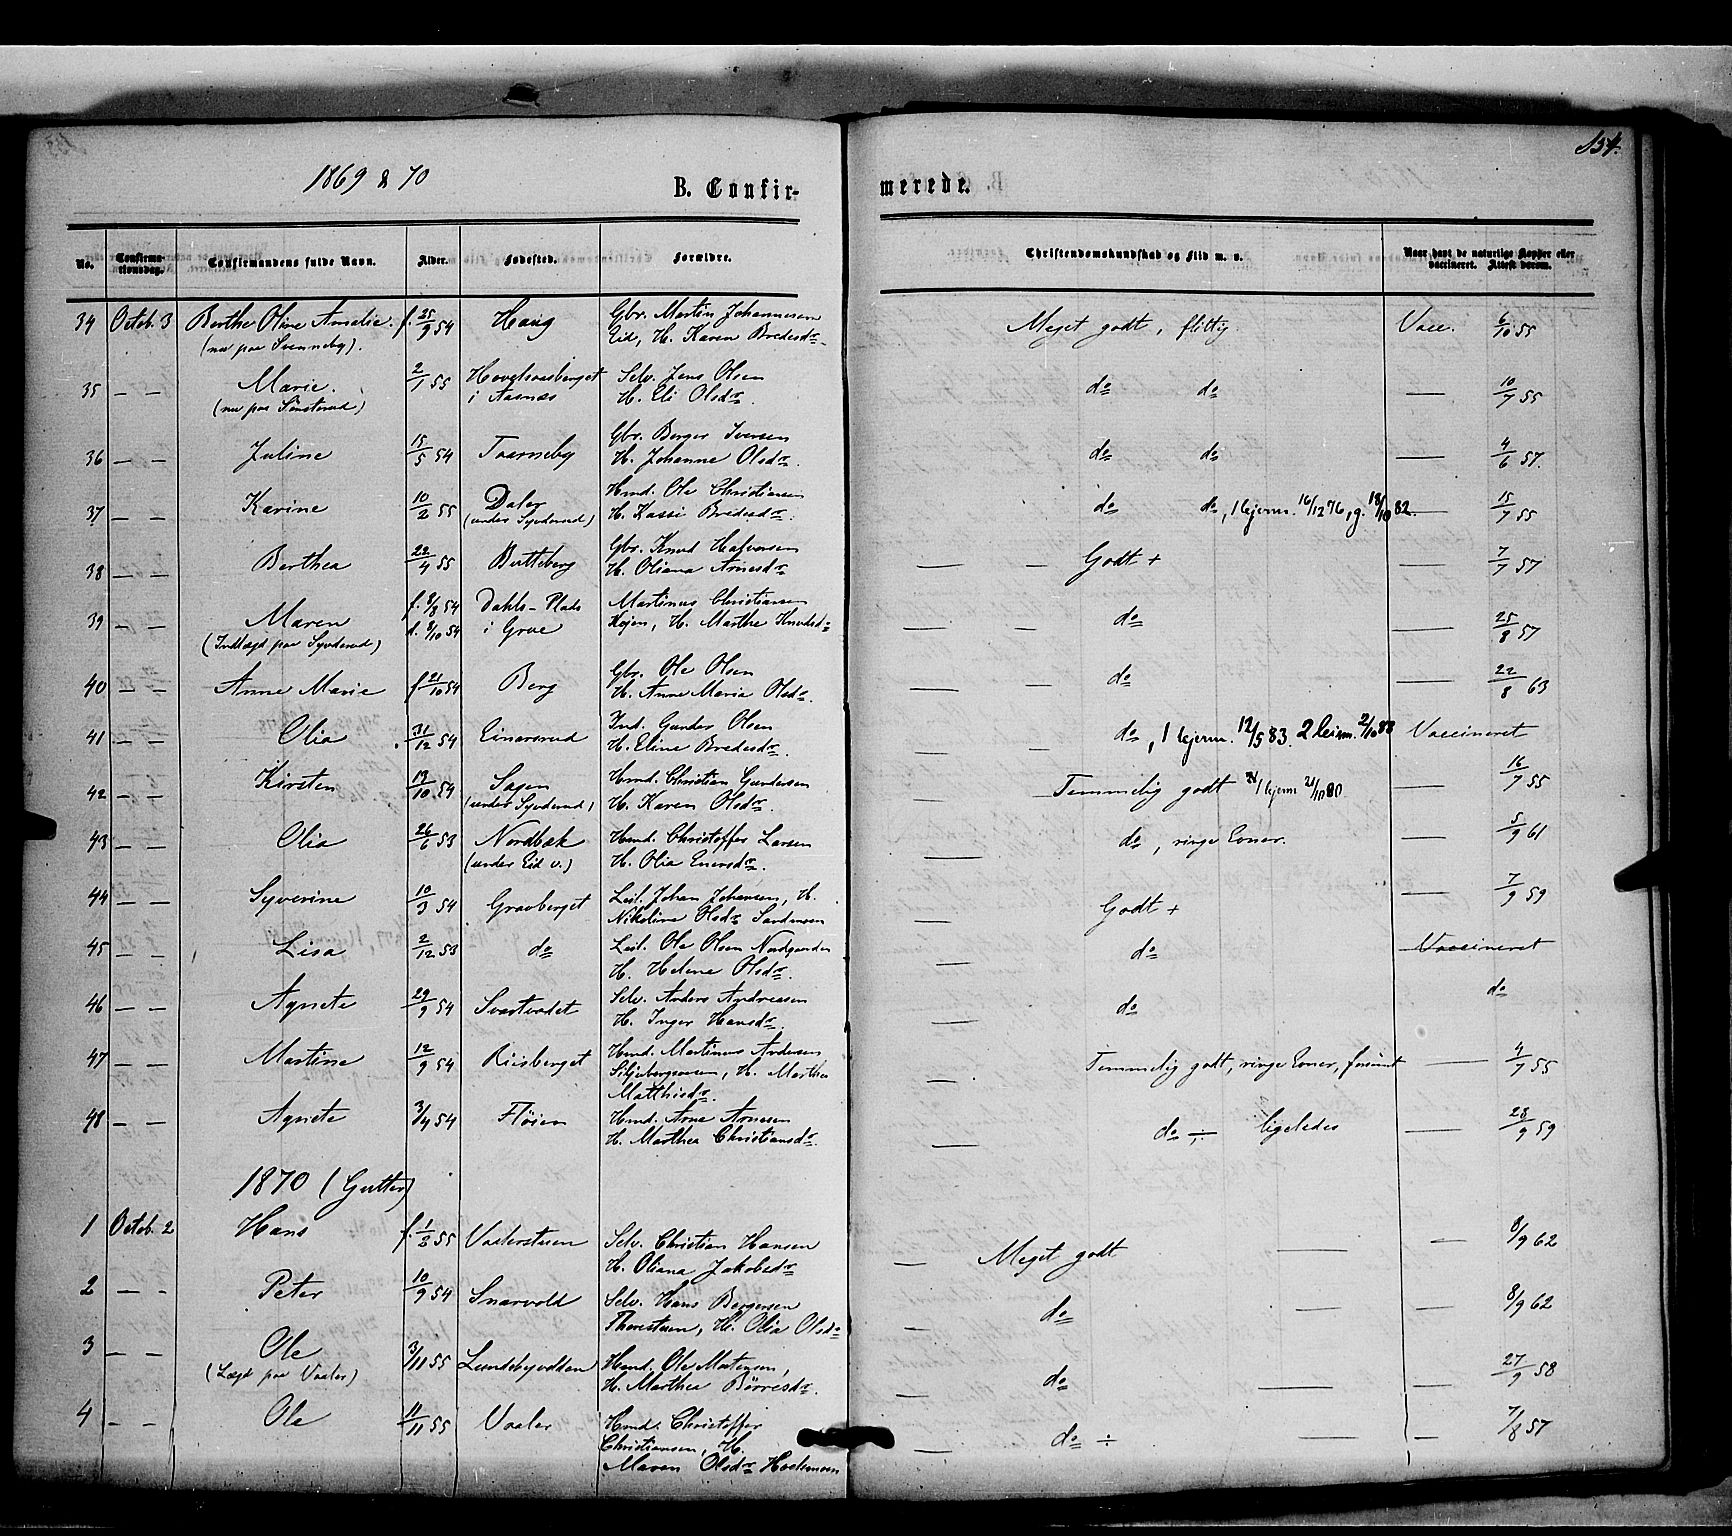 154.
1869 & 70
B. Confirmerede.
No. Confirmationsdag. Confirmandens fulde Navn. Alder. Fødested. Forældre. Christendomskundskab og Flid m. v. Naar havt de naturlige Kopper eller vaccineret. Attest derom.
34 Octob. 3 Berthe Oline Amalie. f. 25/9 54 Haug Gbr. Martin Johannesen Meget godt, flittig. Vacc. 6/10 55
(nu paa Svenneby). Eid, H. Karen Bredesdr.
35 — — Marie. 2/1 55 Hovelsaasberget Selv. Jens Olsen do do — 10/7 55
(nu paa Sønsterud) i Aasnæs H. Eli Olsdr.
36 — — Juline 15/5 54 Taarneby Gbr. Berger Iversen do do — 4/6 57.
H. Johanne Olsdr.
37 — — Karine 10/2 55 Daler Hmd. Ole Christiansen do do, 1 hjerm. 16/12 76, g. 18/10 82. — 15/7 55
(under Syverud) H. Kassi Bredesdr.
38 — — Berthea 22/4 55 Butteberg Gbr. Knud Halvorsen — — Godt + — 7/7 57
H. Oliana Arnesdr
39 — — Maren f. 8/8 54 Dahls-Plads Martinus Christiansen — — do — 25/8 57
(Indlagt paa Syverud) d. 8/10 54 i Grue Kojen, H. Marthe Knudsdr
40 — — Anne Marie f. 21/10 54 Berg Gbr. Ole Olsen — — do — 22/8 63
H. Anne Maria Olsdr.
41 — — Olia 31/12 54 Einarsrud Ind. Gunder Olsen — — do, 1 hjerm. 12/5 83. 2 2/10 88 Vaccineret
H. Eline Bredesdr.
42 — — Kirsten 13/10 54 Sagen Hmd. Christian Gundersen — Temmelig godt 1 hjerm 21/10 80 — 16/7 55
(under Syverud) H. Karen Olsdr.
43 — — Olia 26/6 53 Nordbæk Hmd. Christoffer Larsen — do, ringe Evner. — 5/9 61
(under Eid v.) H. Olia Enersdr.
44 — — Syverine 10/3 54 Gravberget Leil. Johan Johansen, H. — Godt + — 7/9 59
Nikoline Olsdr Sandmoen
45 — — Lisa 2/12 53 do Leil. Ole Olsen Nordgarden — do Vaccineret
H. Helene Olsdr.
46 — — Agnete 29/9 54 Svartvadet Selv. Anders Andreasen — do do
H. Inger Hansdr.
47 — — Martine 12/9 54 Risberget Hmd. Martinus Andersen — Temmelig godt, ringe Evner, forsømt — 4/7 55
H. Marthea
Matthisdr.
48 — — Agnete 3/4 54 Fløien Hmd. Arne Arnesen — do ÷ ligeledes — 28/9 59
H. Marthea Christiansdr.
1870 (Gutter)
1 Octob. 2 Hans f. 1/2 55 Vaalerstuen Selv. Christian Hansen — Meget godt — — 8/9 62
H. Oliana Jakobsdr
2 — — Peter 10/9 54 Snarvold Selv. Hans Bergersen — do — — 8/9 62
H. Olia Olsdr
3 — — Ole 3/11 55 Lundebyvolden Hmd. Ole Mortensen, — do — — 27/9 58
(Lægd paa Vaaler) H. Marthea Børresdr.
4 — — Ole 11/11 55 Vaaler Hmd. Christoffer — do ÷ — — 7/8 57
Christiansen, H.
Maren Olsdr